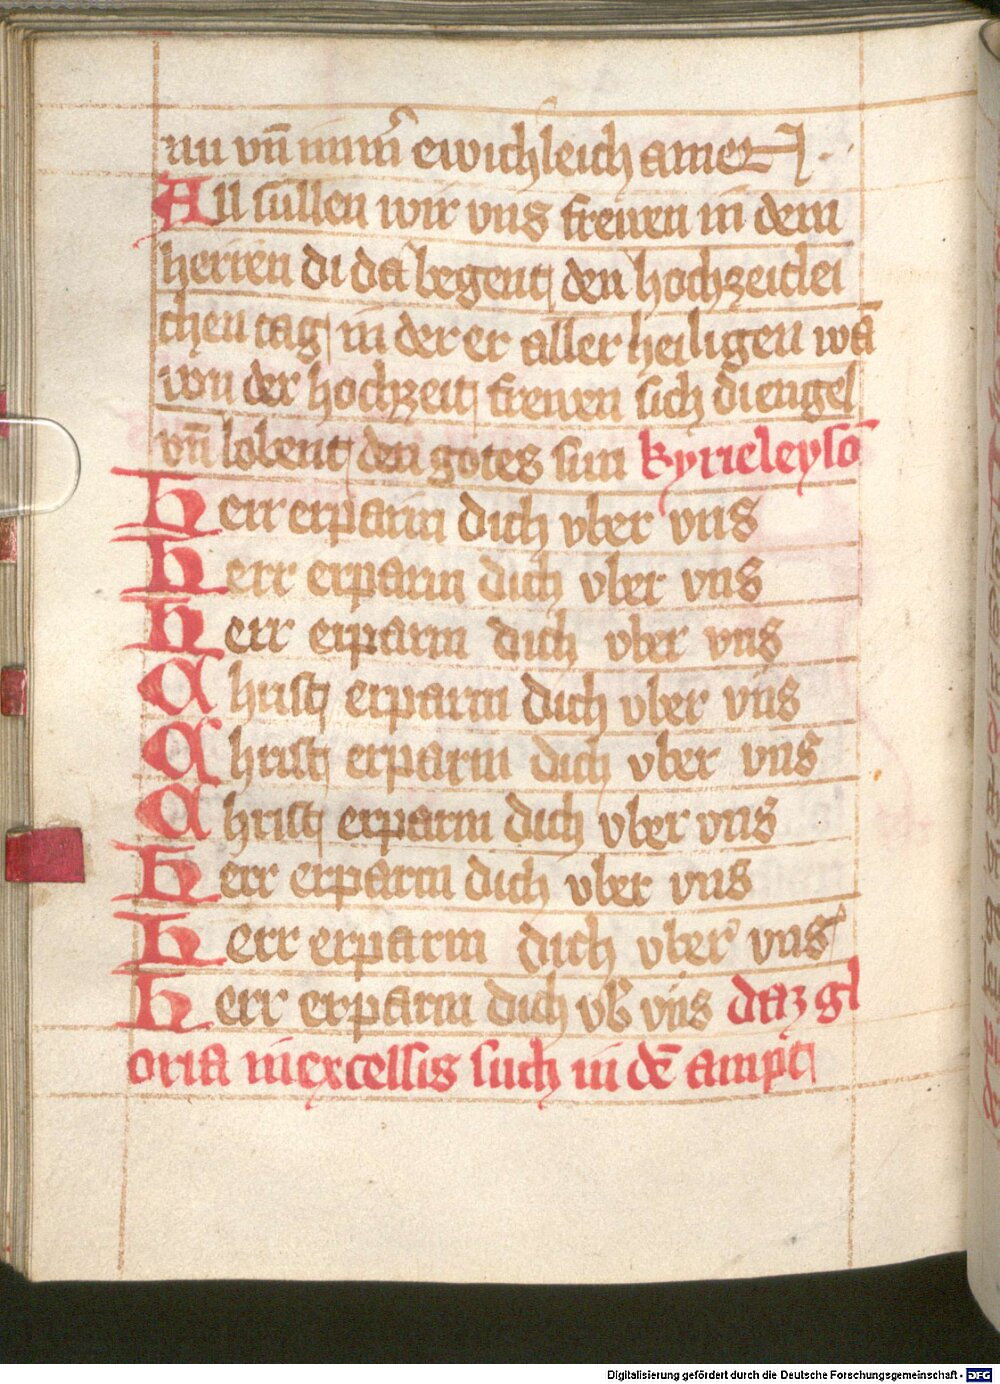 nu vn̄ mīm̄ ewichleich amen
All sullen wir vns frewen in dem
herren di da begent den hochzeitlei
chen tag in der er aller heiligen wā
von der hochzeit frewen sich di engel
vn̄ lobent den gotes sun kyrieleysō
herr erparm dich vber vns
herr erparm dich vber vns
herr erparm dich vber vns
Christ erparm dich vber vns
Christ erparm dich vber vns
Christ erparm dich vber vns
herr erparm dich vber vns
herr erparm dich vber vns
herr erparm dich vb̾ vns daz gl
oria in excelsis such in dē ampt
Digitalisierung gefördert durch die Deutsche Forschungsgemeinschaft - DFG